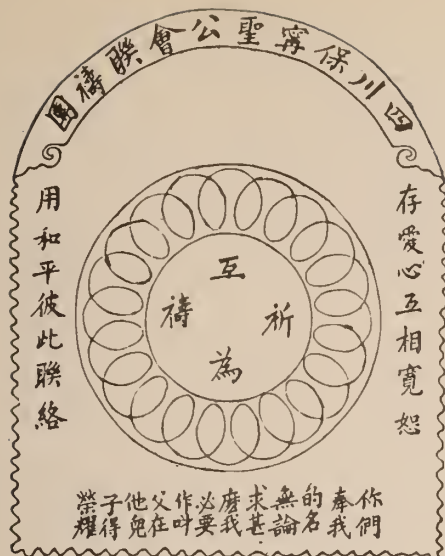 四川保寧聖公會聯禱團
存愛心互相寬恕
用和平彼此聯絡
互為祈禱
你們
奉我
的名
無論
求甚
麽我
必要
作叫
父在
他兒
子得
榮耀